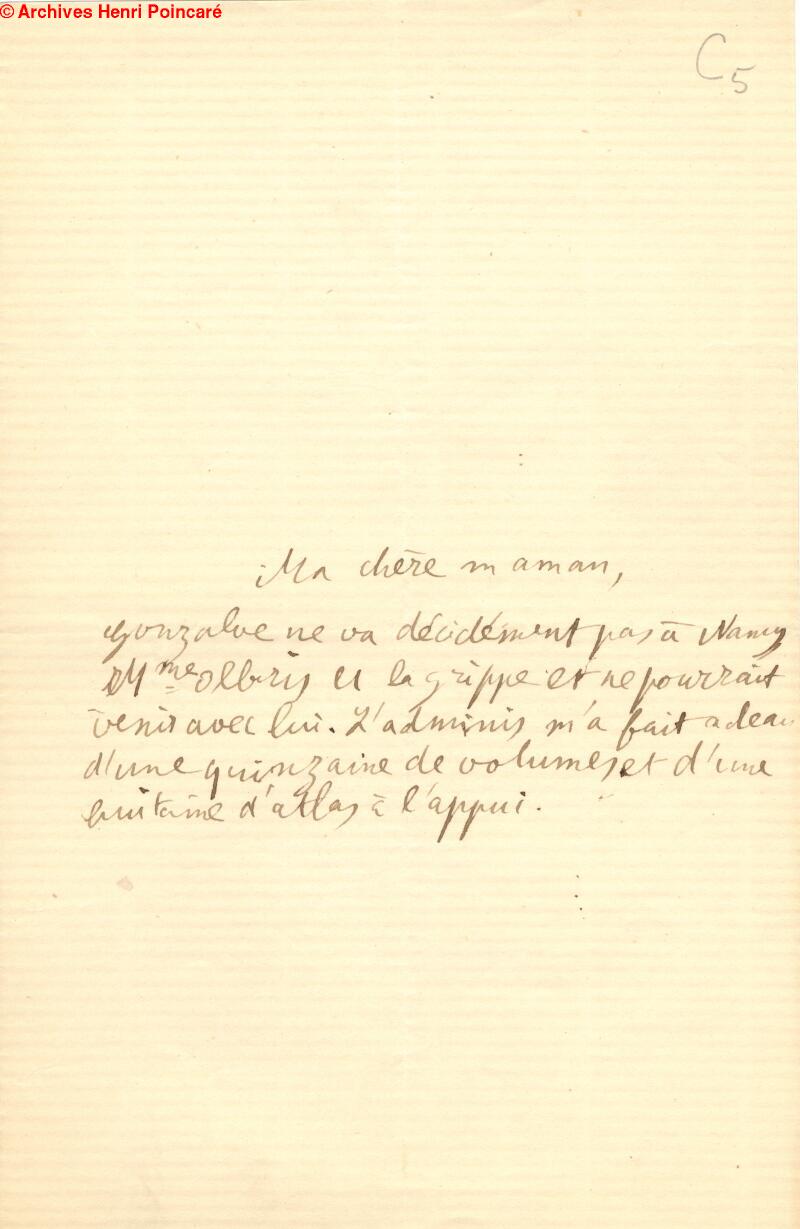 © Archives Henri Poincaré
C5
Ma chère maman,
Gonzalve ne va décidément pas à Nancy
Mme Olleris a la grippe et ne pourrait
venir avec lui. L'adminis m'a fait cadeau
d'une quinzaine de volumes et d'une
huitaine d'atlas à l'appui.